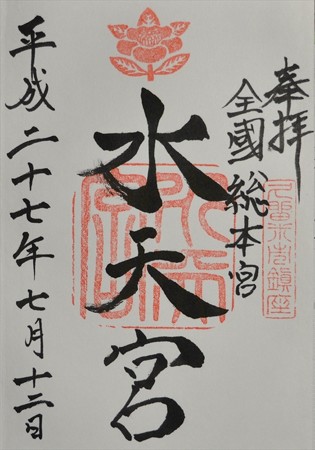 奉拝
全國総本宮
水天宮
平成二十七年七月十二日